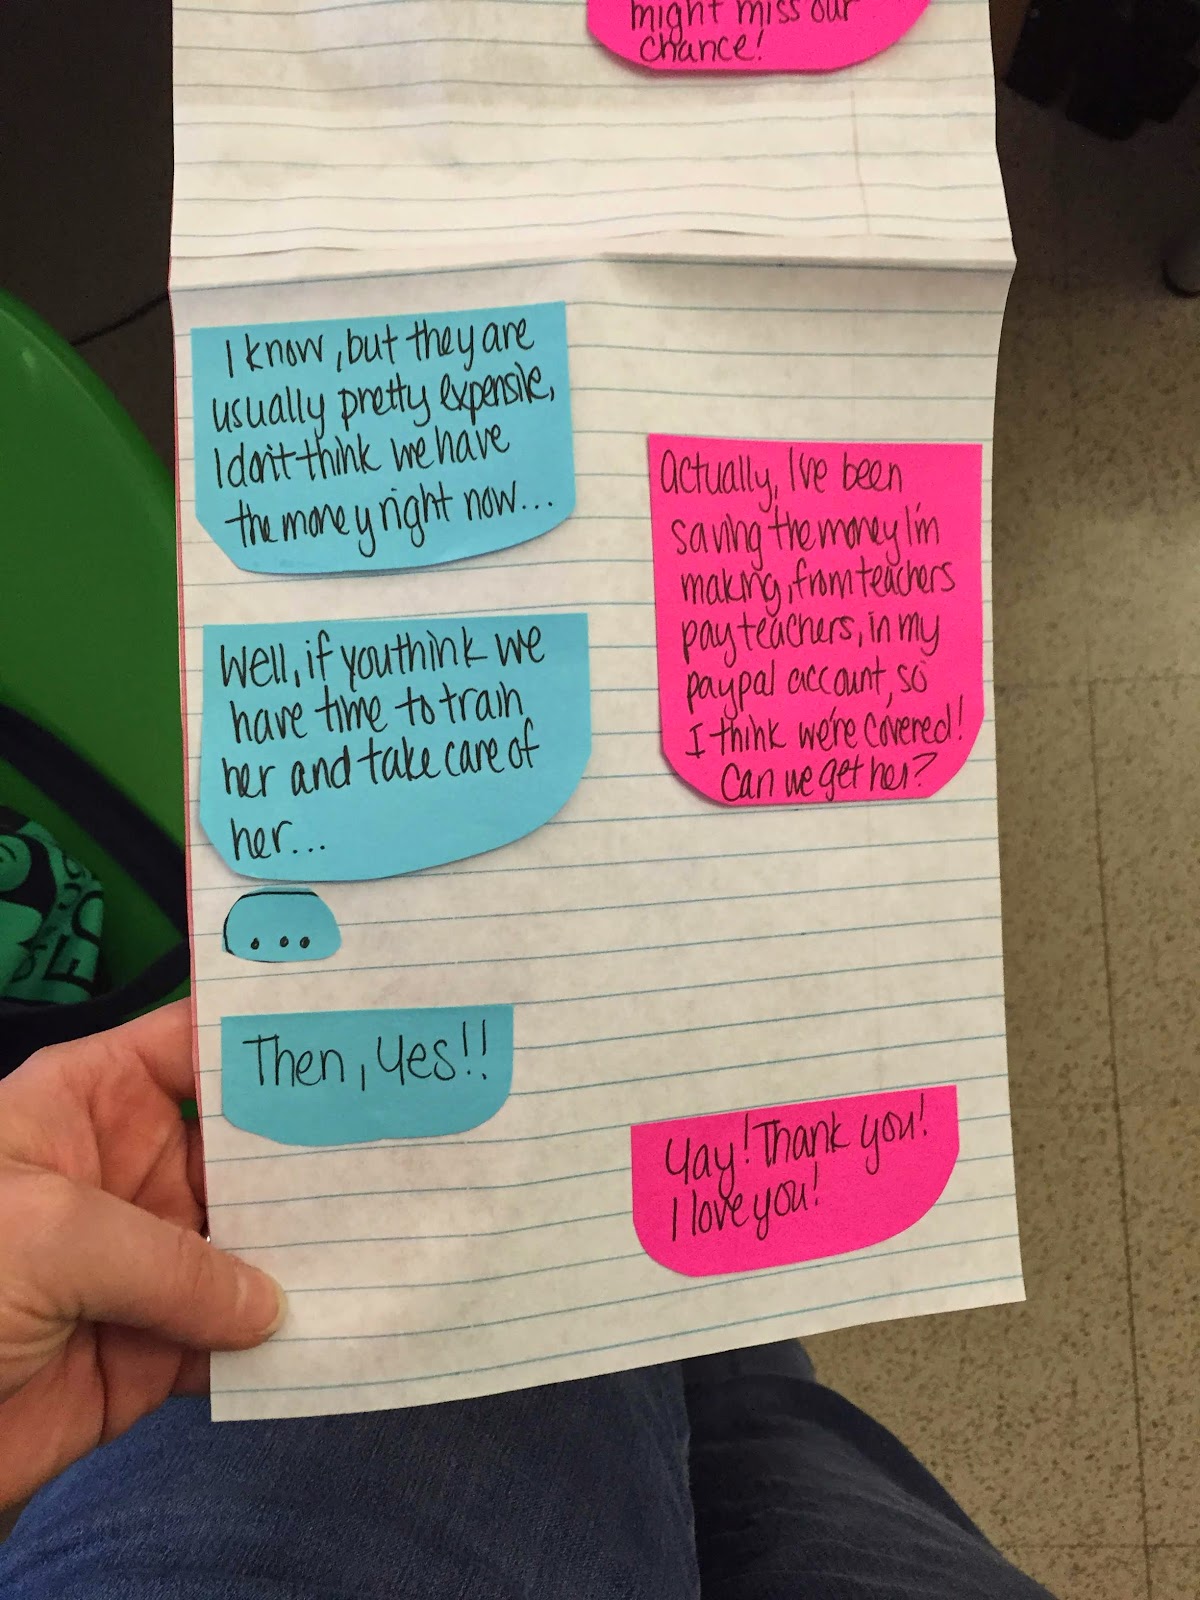 might miss our
chance!
I know, but they are
usually pretty expensive,
I don't think we have
the money right now...
actually, I've been
saving the money I'm
making, from teachers
pay teachers, in my
paypal account, so
I think we're covered!
Can we get her?
Well, if you think we
have time to train
her and take care of
her...
...
Then, Yes!!
Yay! Thank you!
I love you!